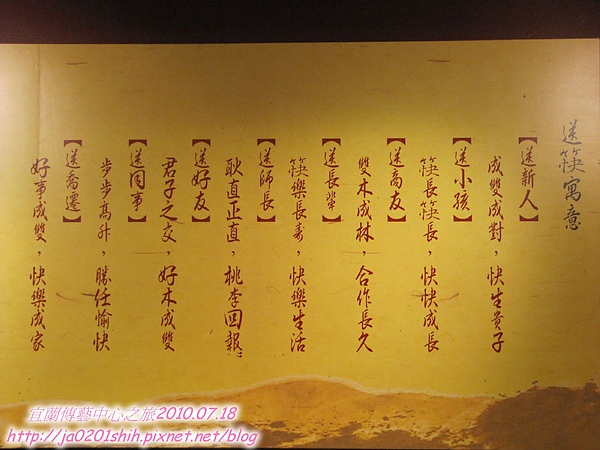 送筷寓意
【送新人】
成雙成對，快生貴子
【送小孩】
筷長筷長，快快成長
【送商友】
雙木成林，合作長久
【送長輩】
筷樂長壽，快樂生活
【送師長】
耿直正直，桃李回報
【送好友】
君子之交，好木成雙
【送同事】
步步高升，勝任愉快
【送喬遷】
好事成雙，快樂成家
宜蘭傳藝中心之旅2010.07.18
http://ja0201shih.pixnet.net/blog